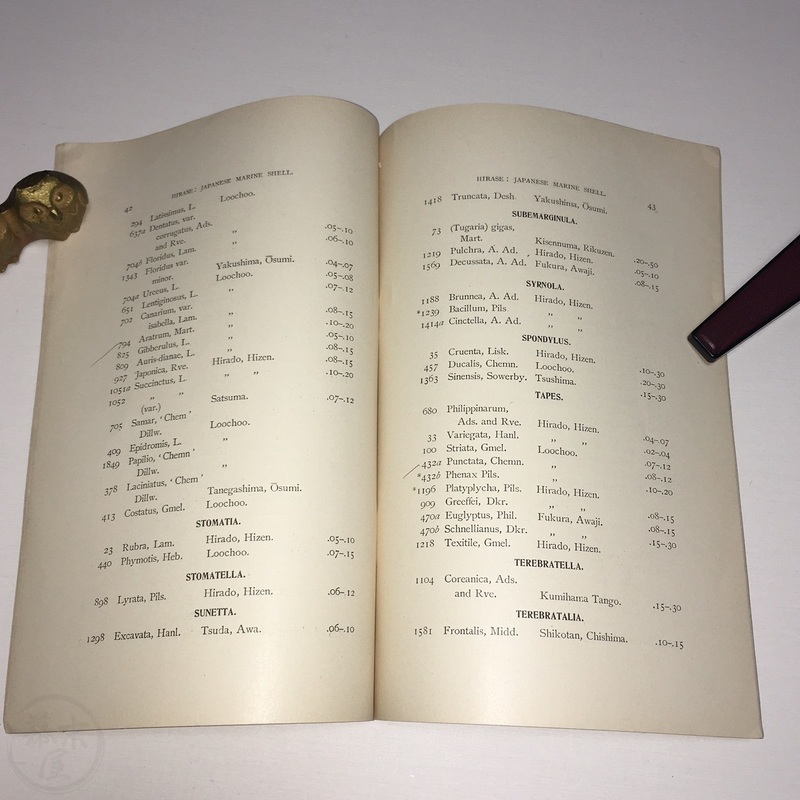 42
HIRASE: JAPANESE MARINE SHELL.
294 Latissimus, L. Loochoo.
637a Dentatus, var.
corrugatus, Ads.
and Rve. „ .05–.10
704b Floridus, Lam. „ .06–.10
1343 Floridus var.
minor. Yakushima, Ōsumi. .04–.07
704a Urceus, L. Loochoo. .05–.08
651 Lentiginosus, L. „ .07–.12
702 Canarium, var.
isabella, Lam. „ .08–.15
794 Aratrum, Mart. „ .10–.20
825 Gibberulus, L. „ .05–.10
809 Auris-dianae, L. „ .08–.15
927 Japonica, Rve. Hirado, Hizen. .08–.15
1051a Succinctus, L. „ „ .10–.20
1052 „ „
(var.) Satsuma. .07–.12
705 Samar, 'Chem'
Dillw. Loochoo.
409 Epidromis, L. „
1849 Papilio, 'Chemn'
Dillw. „
378 Laciniatus, 'Chem'
Dillw. Tanegashima, Ōsumi.
413 Costatus, Gmel. Loochoo.
STOMATIA.
23 Rubra, Lam. Hirado, Hizen. .05–.10
440 Phymotis, Heb. Loochoo. .07–.15
STOMATELLA.
898 Lyrata, Pils. Hirado, Hizen. .06–.12
SUNETTA.
1298 Excavata, Hanl. Tsuda, Awa. .06–.10
HIRASE: JAPANESE MARINE SHELL.
43
1418 Truncata, Desh Yakushima, Ōsumi.
SUBEMARGINULA.
73 (Tugaria) gigas,
Mart. Kisennuma, Rikuzen. .20–.50
1219 Pulchra, A. Ad. Hirado, Hizen. .05–.10
1569 Decussata, A. Ad. Fukura, Awaji. .08–.15
SYRNOLA.
1188 Brunnea, A. Ad. Hirado, Hizen.
*1239 Bacillum, Pils „ „
1414a Cinctella, A. Ad. „ „
SPONDYLUS.
35 Cruenta, Lisk. Hirado, Hizen. .10–.30
457 Ducalis, Chemn. Loochoo. .20–.30
1363 Sinensis, Sowerby. Tsushima. .15–.30
TAPES.
680 Philippinarum,
Ads. and Rve. Hirado, Hizen. .04–.07
33 Variegata, Hanl. „ „ .02–.04
100 Striata, Gmel. Loochoo. .07–.12
432a Punctata, Chemn. „ .08–.12
*432b Phenax Pils. „ .10–.20
*1196 Platyplycha, Pils. Hirado, Hizen.
909 Greeffei, Dkr. „ „ .08–.15
470a Euglyptus, Phil. Fukura, Awaji. .08–.15
470b Schnellianus, Dkr. „ „ .15–.30
1218 Textile, Gmel. Hirado, Hizen.
TEREBRATELLA.
1104 Coreanica, Ads.
and Rve. Kumihama Tango. .15–.30
TEREBRATALIA.
1581 Frontalis, Midd. Shikotan, Chishima. .10–.15